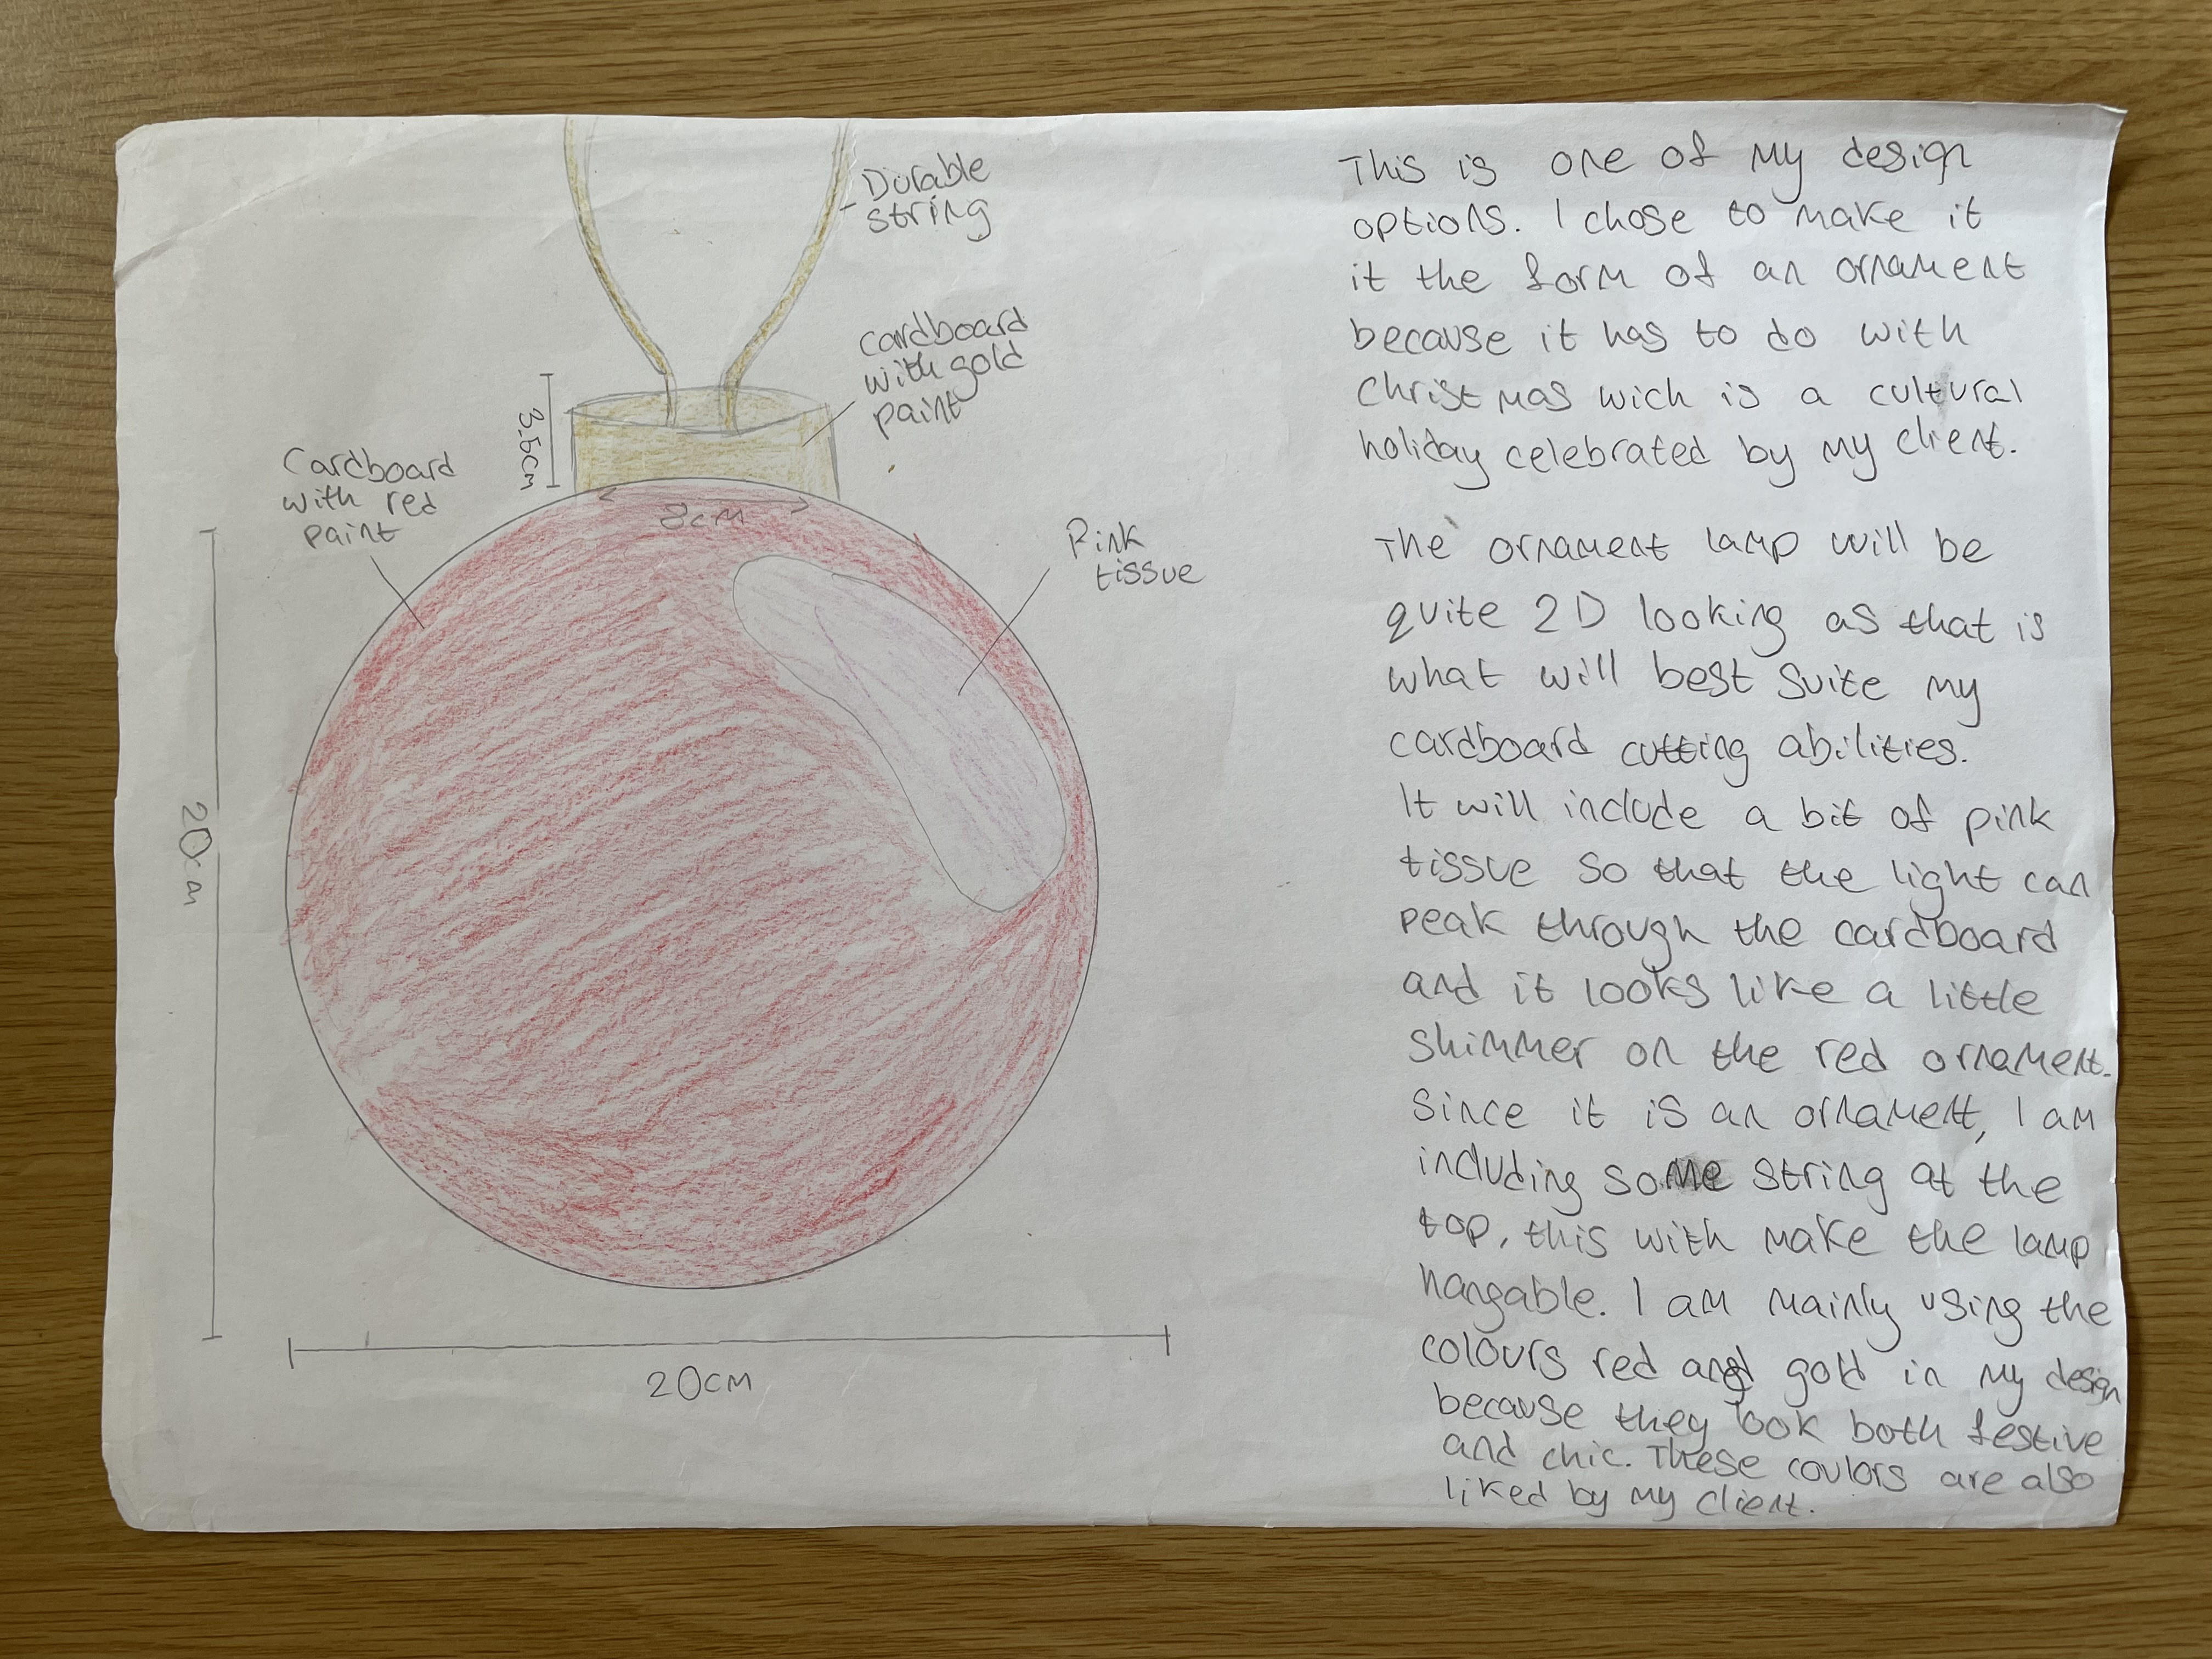 Durable
string
cardboard
with gold
paint
3.5cm
8cm
Cardboard
with red
paint
Pink
tissue
20cm
20cm
This is one of my design
options. I chose to make it
it the form of an ornament
because it has to do with
Christmas wich is a cultural
holiday celebrated by my client.
The ornament lamp will be
quite 2D looking as that is
what will best suite my
cardboard cutting abilities.
It will include a bit of pink
tissue so that the light can
peak through the cardboard
and it looks like a little
shimmer on the red ornament.
Since it is an ornament, I am
including some string at the
top, this with make the lamp
hangable. I am mainly using the
colours red and gold in my design
because they look both festive
and chic. These coulors are also
liked by my client.